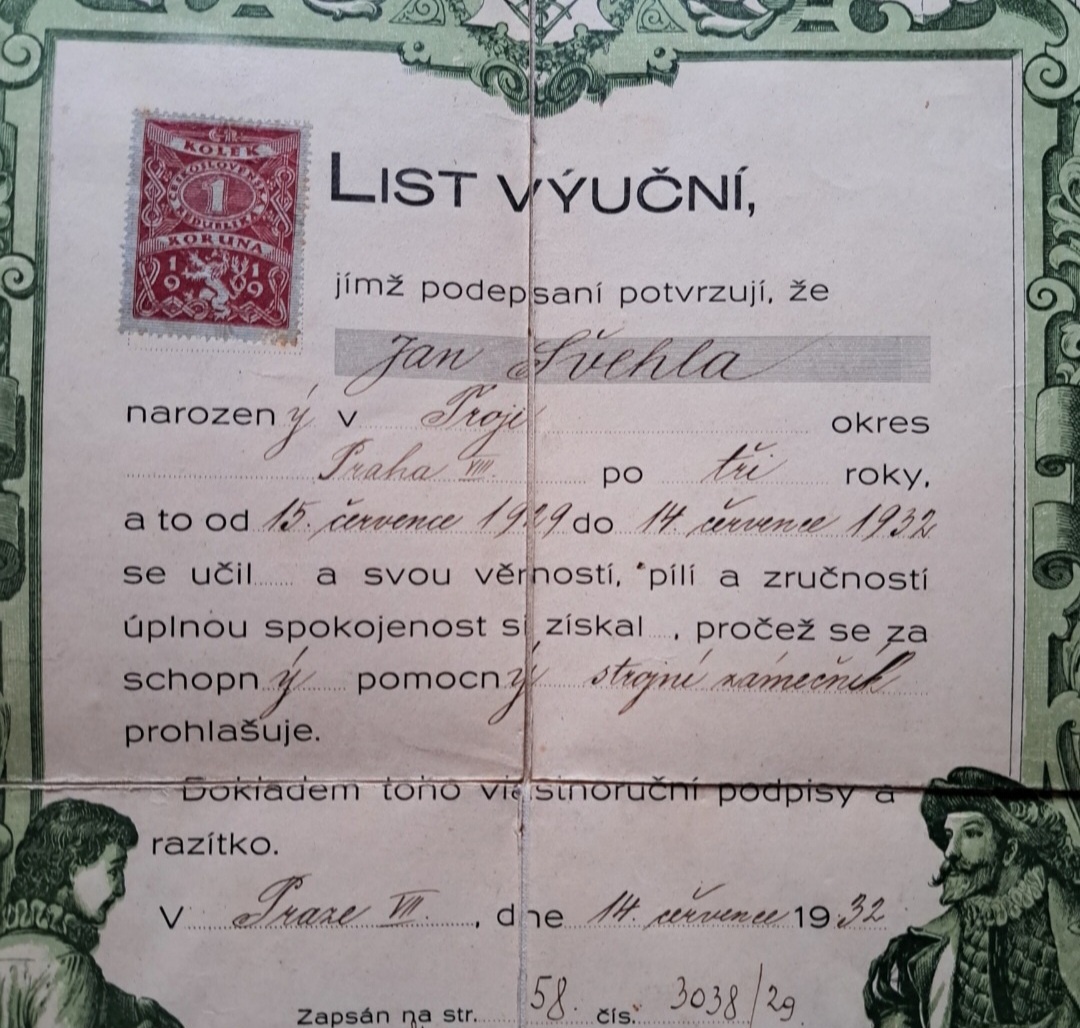 KOLEK
ČESKOSLOVENSKÁ
1
REPUBLIKA
KORUNA
1919
LIST VÝUČNÍ,
jímž podepsaní potvrzují, že
Jan Švehla
narozený v Troji okres
Praha VIII. po tři roky,
a to od 15. července 1929 do 14. července 1932
se učil a svou věrností, pílí a zručností
úplnou spokojenost si získal, pročež se za
schopný pomocný strojní zámečník
prohlašuje.
Dokladem toho vlastnoruční podpisy a
razítko.
V Praze VII., dne 14. července 1932
Zapsán na str. 58. čís. 3038/29